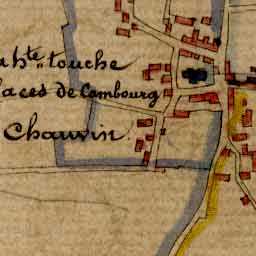 hte touche
laces de Combourg
Chauvin.